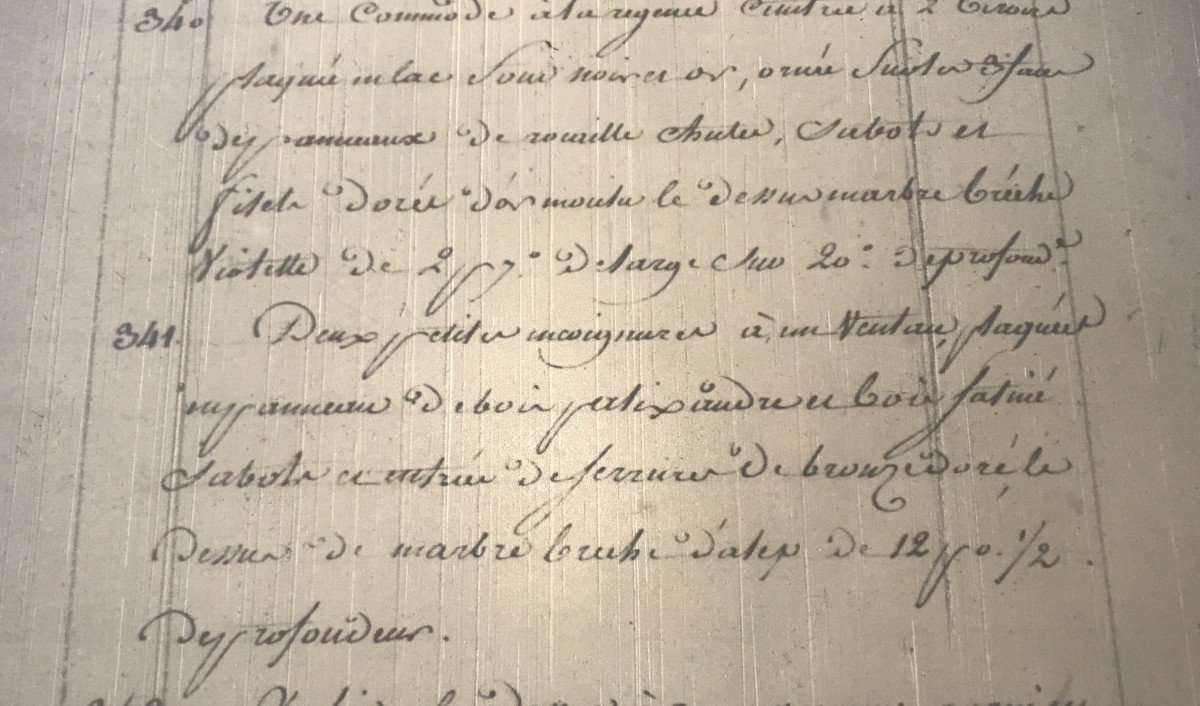 340 Une Commode à la regence Ceintrée à 2 tiroirs
plaquée en lac fond noir et or, ornée sur les 3 faces
de panneaux de rocaille chutes, Sabots et
filets dorés d'or moulu le dessus marbre brêche
Violette de 2 p 7.° de large sur 20.° de profond.r
341. Deux petites encoignures à un Ventau, plaquées
en panneau de bois palixandre et bois satiné
Sabots et entrée de serrures de bronze doré, le
Dessus de marbre breche d'alep de 12 po. 1/2
De profondeur.